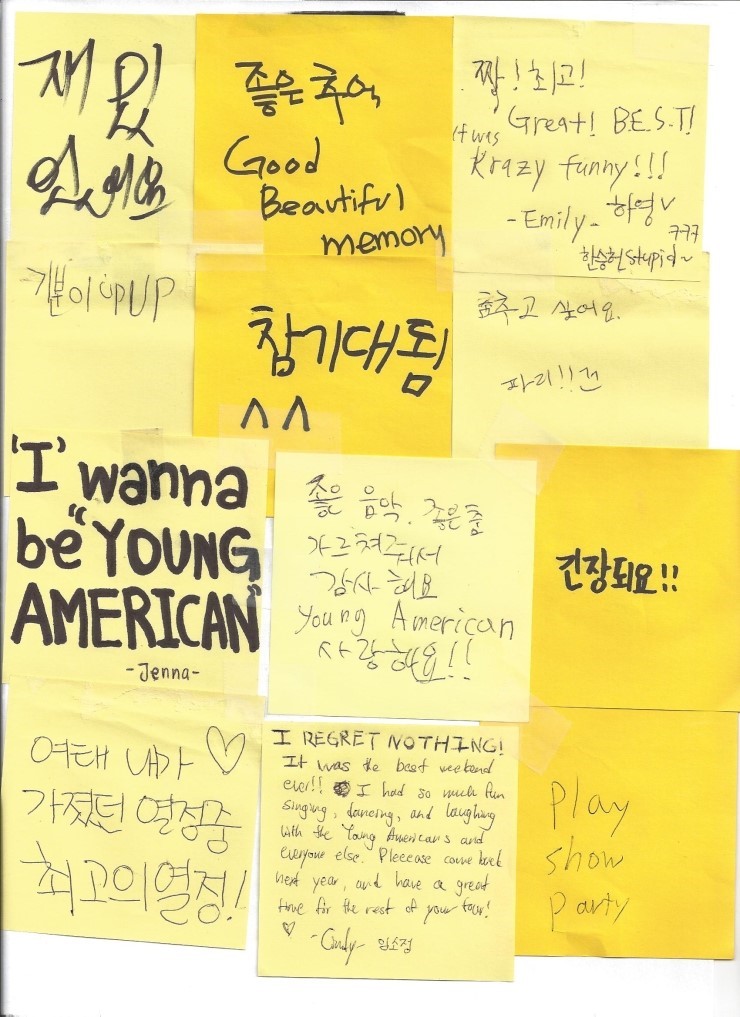 재밌
었어요
좋은 추억
Good
Beautiful
memory
짱! 최고!
It was Great! B.E.S.T!
Krazy funny!!!
-Emily- 하영V
ㅋㅋㅋ
한승헌 stupid~
기분이 UP UP
참기대됨
^^
춤추고 싶어요.
파리!!
'I' wanna
be "YOUNG
AMERICAN"
-Jenna-
좋은 음악. 좋은춤
가르쳐줘서
감사해요
Young American
사랑해요!!
긴장되요!!
여태 내가 ♡
가졌던 열정중
최고의열정!
I REGRET NOTHING!
It was the best weekend
ever!! I had so much fun
singing, dancing, and laughing
with the Young Americans and
everyone else. Pleeease come back
next year, and have a great
time for the rest of your tour!
♡ -Cindy-
Play
show
party